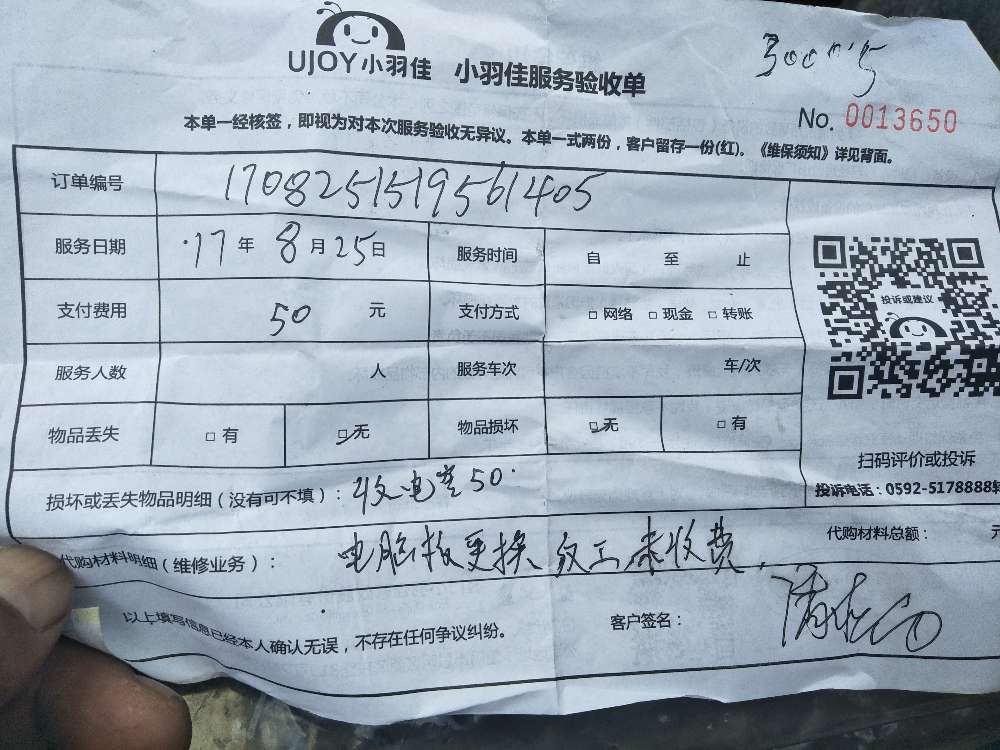 UJOY小羽佳 小羽佳服务验收单
No. 0013650
本单一经核签，即视为对本次服务验收无异议。本单一式两份，客户留存一份(红)。《维保须知》详见背面。
订单编号 1708251519561405
服务日期 17年8月25日 服务时间 自 至 止
支付费用 50 元 支付方式 □网络 □现金 □转账
服务人数 人 服务车次 车/次
物品丢失 □有 □无 物品损坏 □无 □有
投诉或建议
扫码评价或投诉
投诉电话：0592-5178888转
损坏或丢失物品明细（没有可不填）：收 50
代购材料明细（维修业务）：电脑板更换 未收费
代购材料总额： 元
以上填写信息已经本人确认无误，不存在任何争议纠纷。
客户签名：